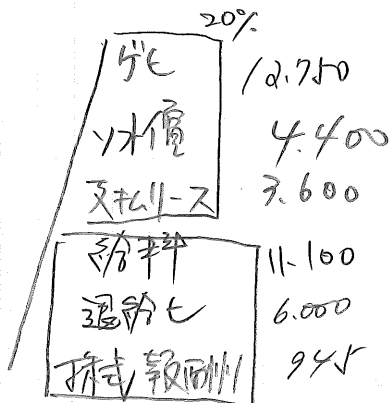 20%
ゲヒ 12.750
ソフト償 4.400
支払リース 3.600
給料 11.100
退給ヒ 6.000
株式報酬 945